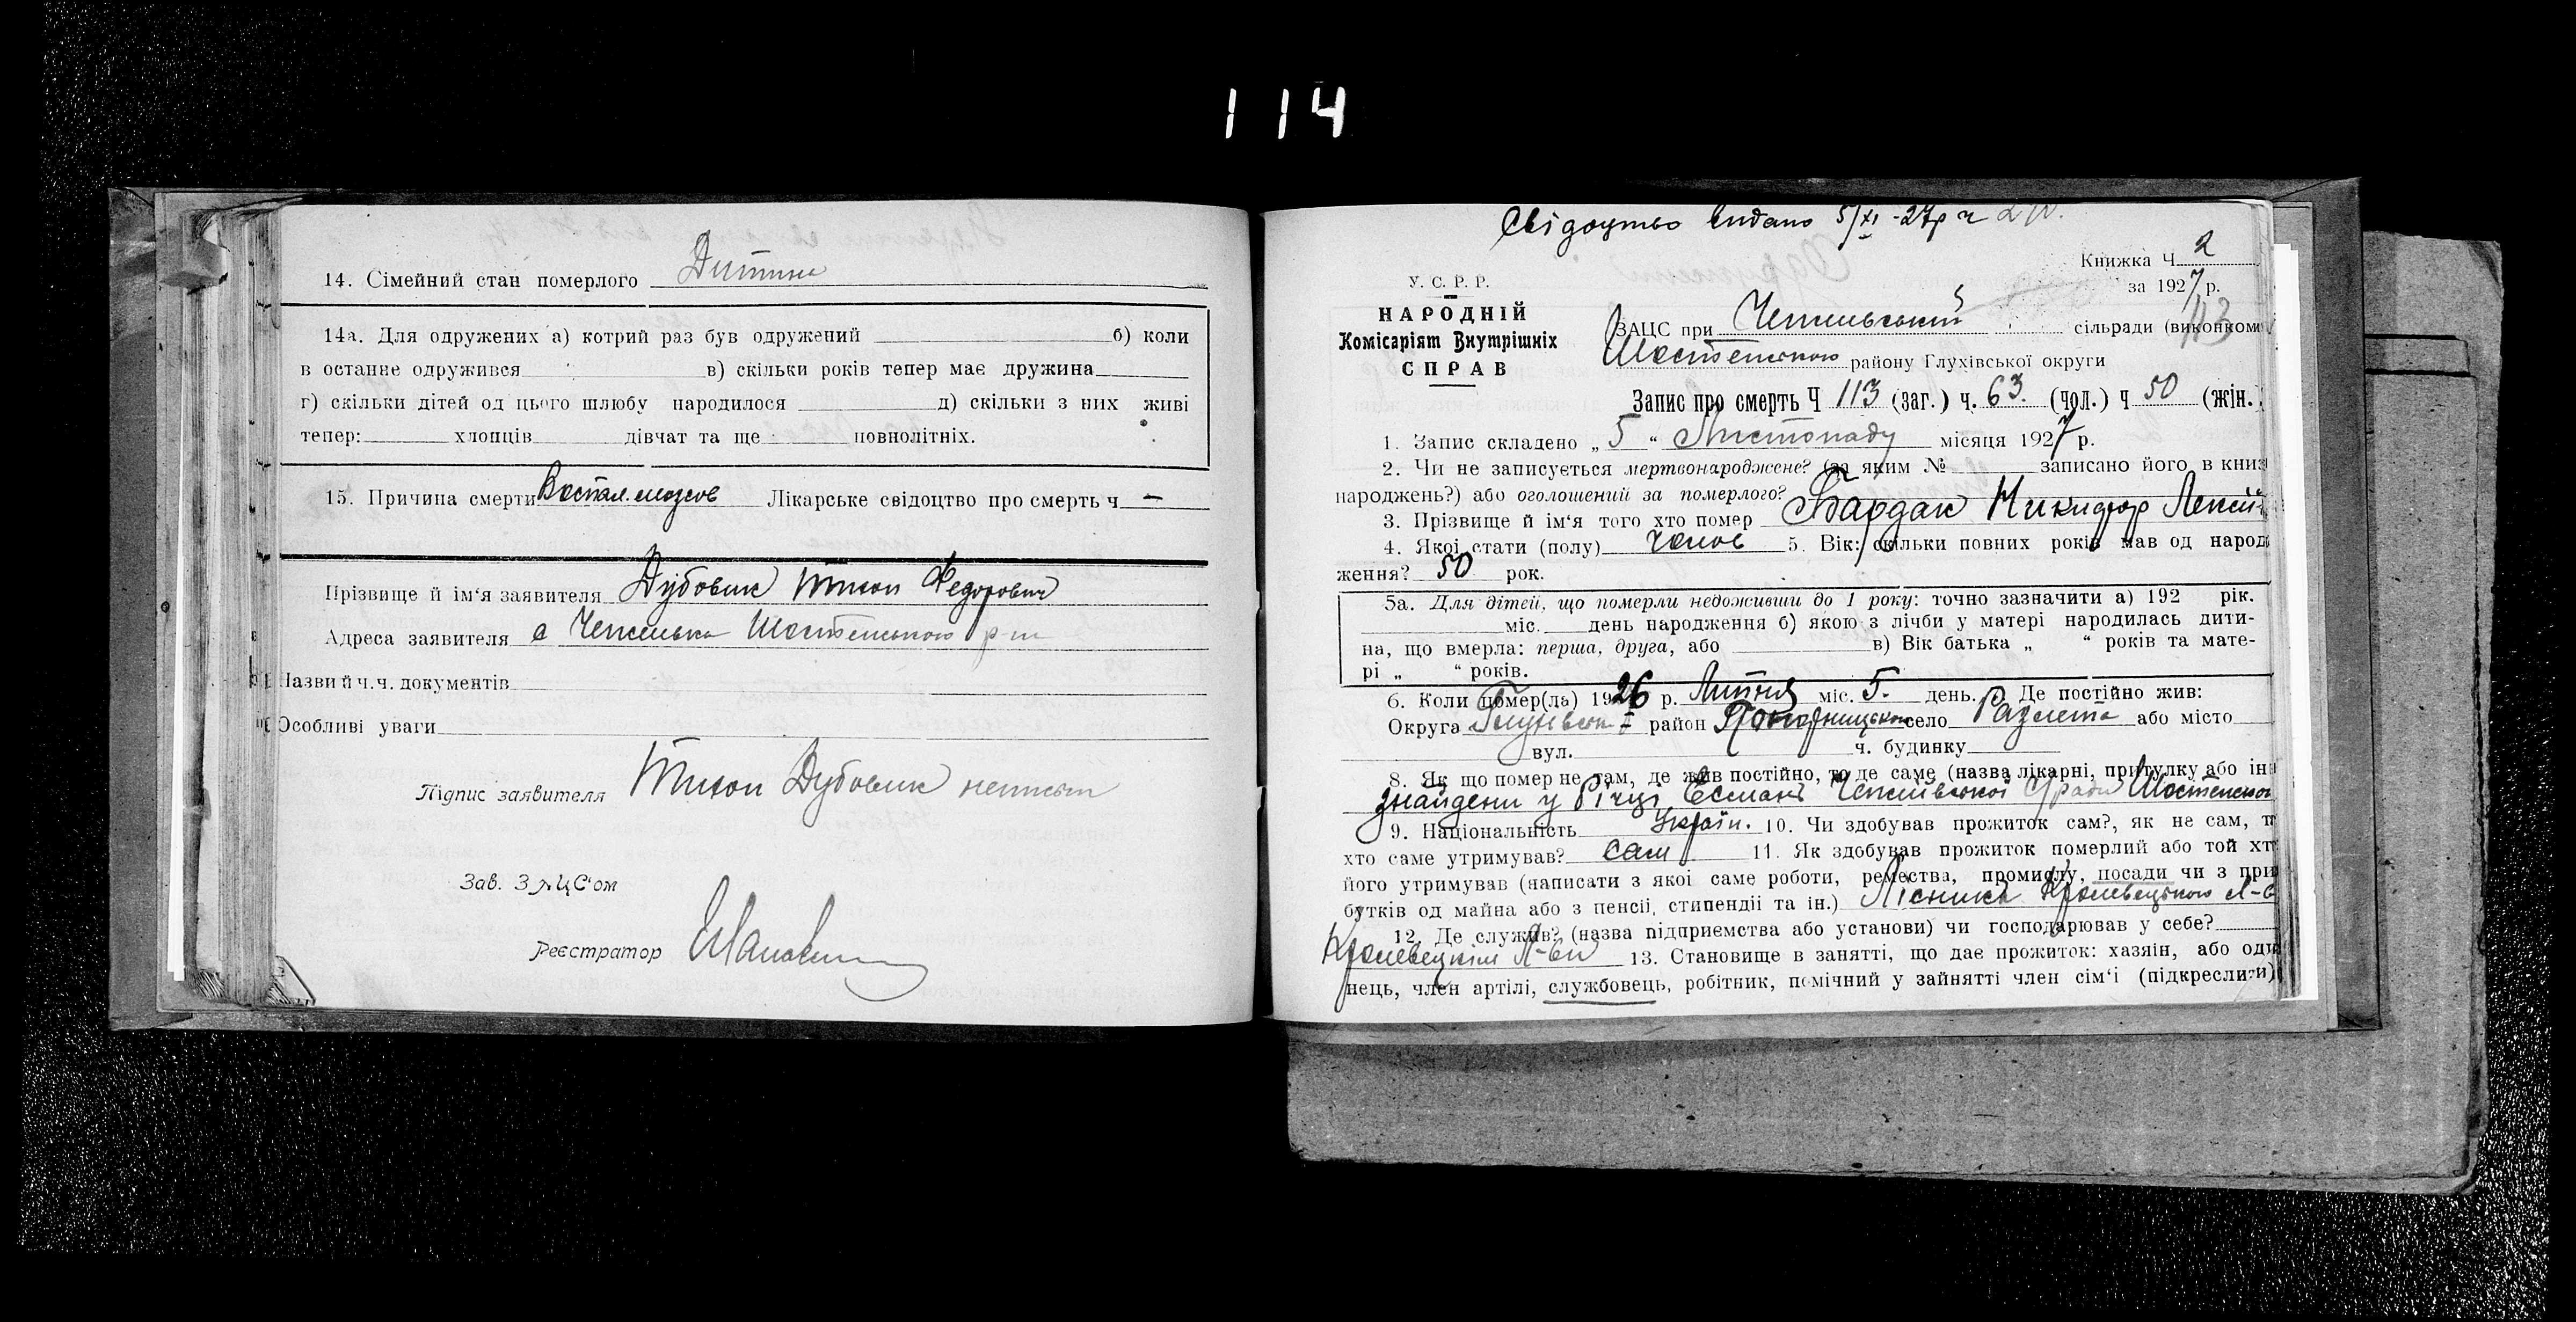 114
14. Сімейний стан померлого Дитина
14а. Для одружених а) котрий раз був одружений б) коли
в останне одружився в) скільки років тепер має дружина
г) скільки дітей од цього шлюбу народилося д) скільки з них живі
тепер: хлопців дівчат та ще повнолітніх.
15. Причина смерти Воспал. мозгов Лікарське свідоцтво про смерть ч —
Прізвище й ім‘я заявителя Дубовик Тихон Федорович
Адреса заявителя с Чепліївка Шостенського р-ну
Назви й ч.ч. документів
Особливі уваги
Підпис заявителя Тихон Дубовик
Зав. ЗАЦС‘ом
Реєстратор
Свідоцтво видано 5/XI -27р ч
Книжка Ч. 2
за 1927 р.
113
У. С. Р. Р.
НАРОДНІЙ
Комісаріят Внутрішніх
СПРАВ
ЗАЦС при сільради (виконком
Шостенського району Глухівської округи
Запис про смерть Ч 113 (заг.) ч. 63. (чол.) ч 50 (жін.
1. Запис складено „ 5 “ Листопаду місяця 1927 р.
2. Чи не записується мертвонароджене? (за яким № записано його в книз
народжень?) або оголошений за померлого?
3. Прізвище й ім‘я того хто помер Бардак Никифор
4. Якої стати (полу) чолов 5. Вік: скільки повних років мав од народ
ження? 50 рок.
5а. Для дітей, що померли недоживши до 1 року: точно зазначити а) 192 рік.
міс. день народження б) якою з лічби у матері народилась дити-
на, що вмерла: перша, друга, або в) Вік батька „ “ років та мате-
рі „ “ років.
6. Коли помер(ла) 1926 р. Липня міс. 5. день. Де постійно жив:
Округа Глухівськ район село або місто
вул. ч. будинку
8. Як що помер не там, де жив постійно, то де саме (назва лікарні, притулку або ін
знайдени у річці Есмань Чепліївської Шостенськ
9. Національність Україн. 10. Чи здобував прожиток сам?, як не сам, т
хто саме утримував? сам 11. Як здобував прожиток померлий або той хт
його утримував (написати з якої саме роботи, ремества, промислу, посади чи з при
бутків од майна або з пенсії, стипендії та ін.) Лісника Кролевецького Л-в
12. Де служив? (назва підприемства або установи) чи господарював у себе?
Кролевецкім Л-ві 13. Становище в занятті, що дає прожиток: хазяін, або оди
нець, член артілі, службовець, робітник, помічний у зайнятті член сім‘і (підкреслити)